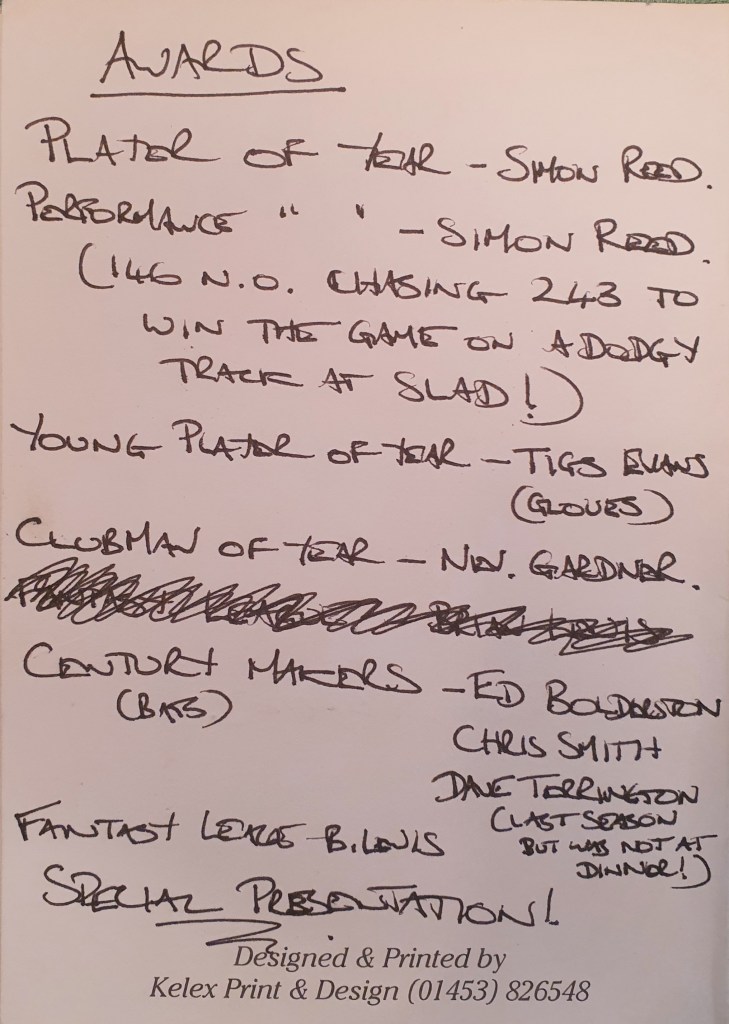 AWARDS
PLAYER OF YEAR - SIMON REED.
PERFORMANCE " " - SIMON REED.
(146 N.O. CHASING 243 TO
WIN THE GAME ON A DODGY
TRACK AT SLAD!)
YOUNG PLAYER OF YEAR - TIGS EVANS
(GLOVES)
CLUBMAN OF YEAR - NEV. GARDNER.
CENTURY MAKERS - ED BOLDERSTON
(BATS)
CHRIS SMITH
DAVE TERRINGTON
(LAST SEASON
BUT WAS NOT AT
DINNER!)
FANTASY LEAGE - B. LEWIS
SPECIAL PRESENTATION!
Designed & Printed by
Kelex Print & Design (01453) 826548